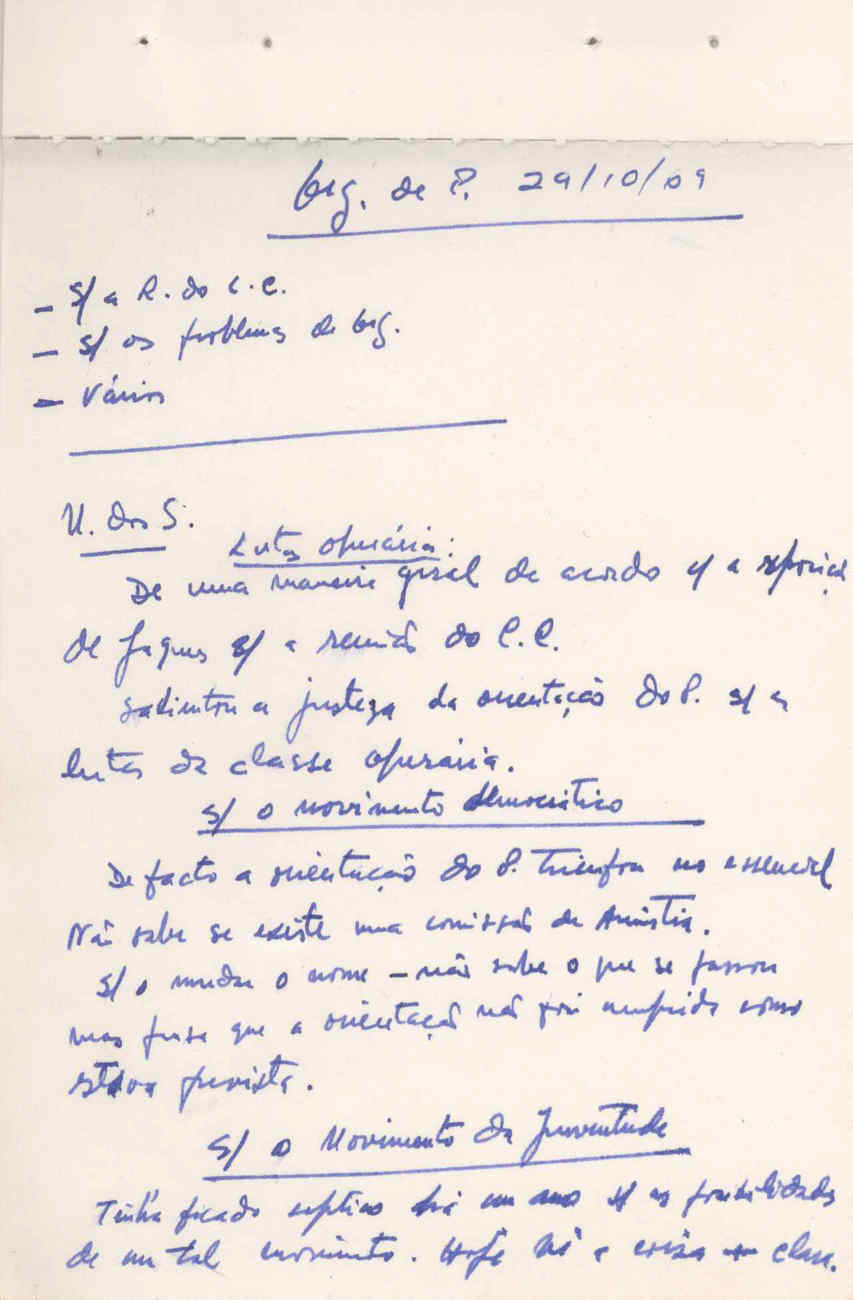 Org. de P. 29/10/09
- S/ a R. do C.C.
- S/ os problemas de Org.
- Vários
U. dos S.
Lutas operárias:
De uma maneira geral de acordo c/ a
de Jaques s/ a reunião do C.C.
Salientou a justeza da orientação do P. s/ as
lutas da classe operária.
S/ o movimento democrático
De facto a orientação do P. triunfou no essencial
Não sabe se existe uma comissão de Amnistia.
S/ o mudar o nome – não sabe o que se passou
mas pensa que a orientação não foi cumprida como
estava prevista.
S/ o Movimento da Juventude
Tinha ficado céptico há um ano s/ as possibilidades
de um tal movimento. Hoje vê a coisa + clara.